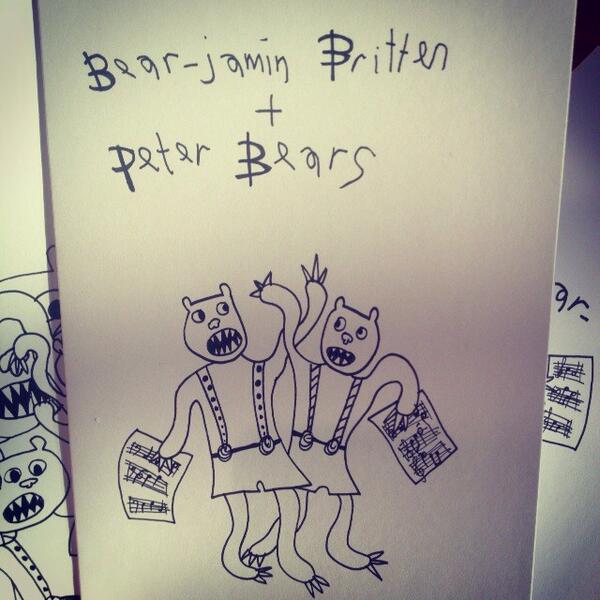 Bear-jamin Britten
+
Peter Bears
ar-